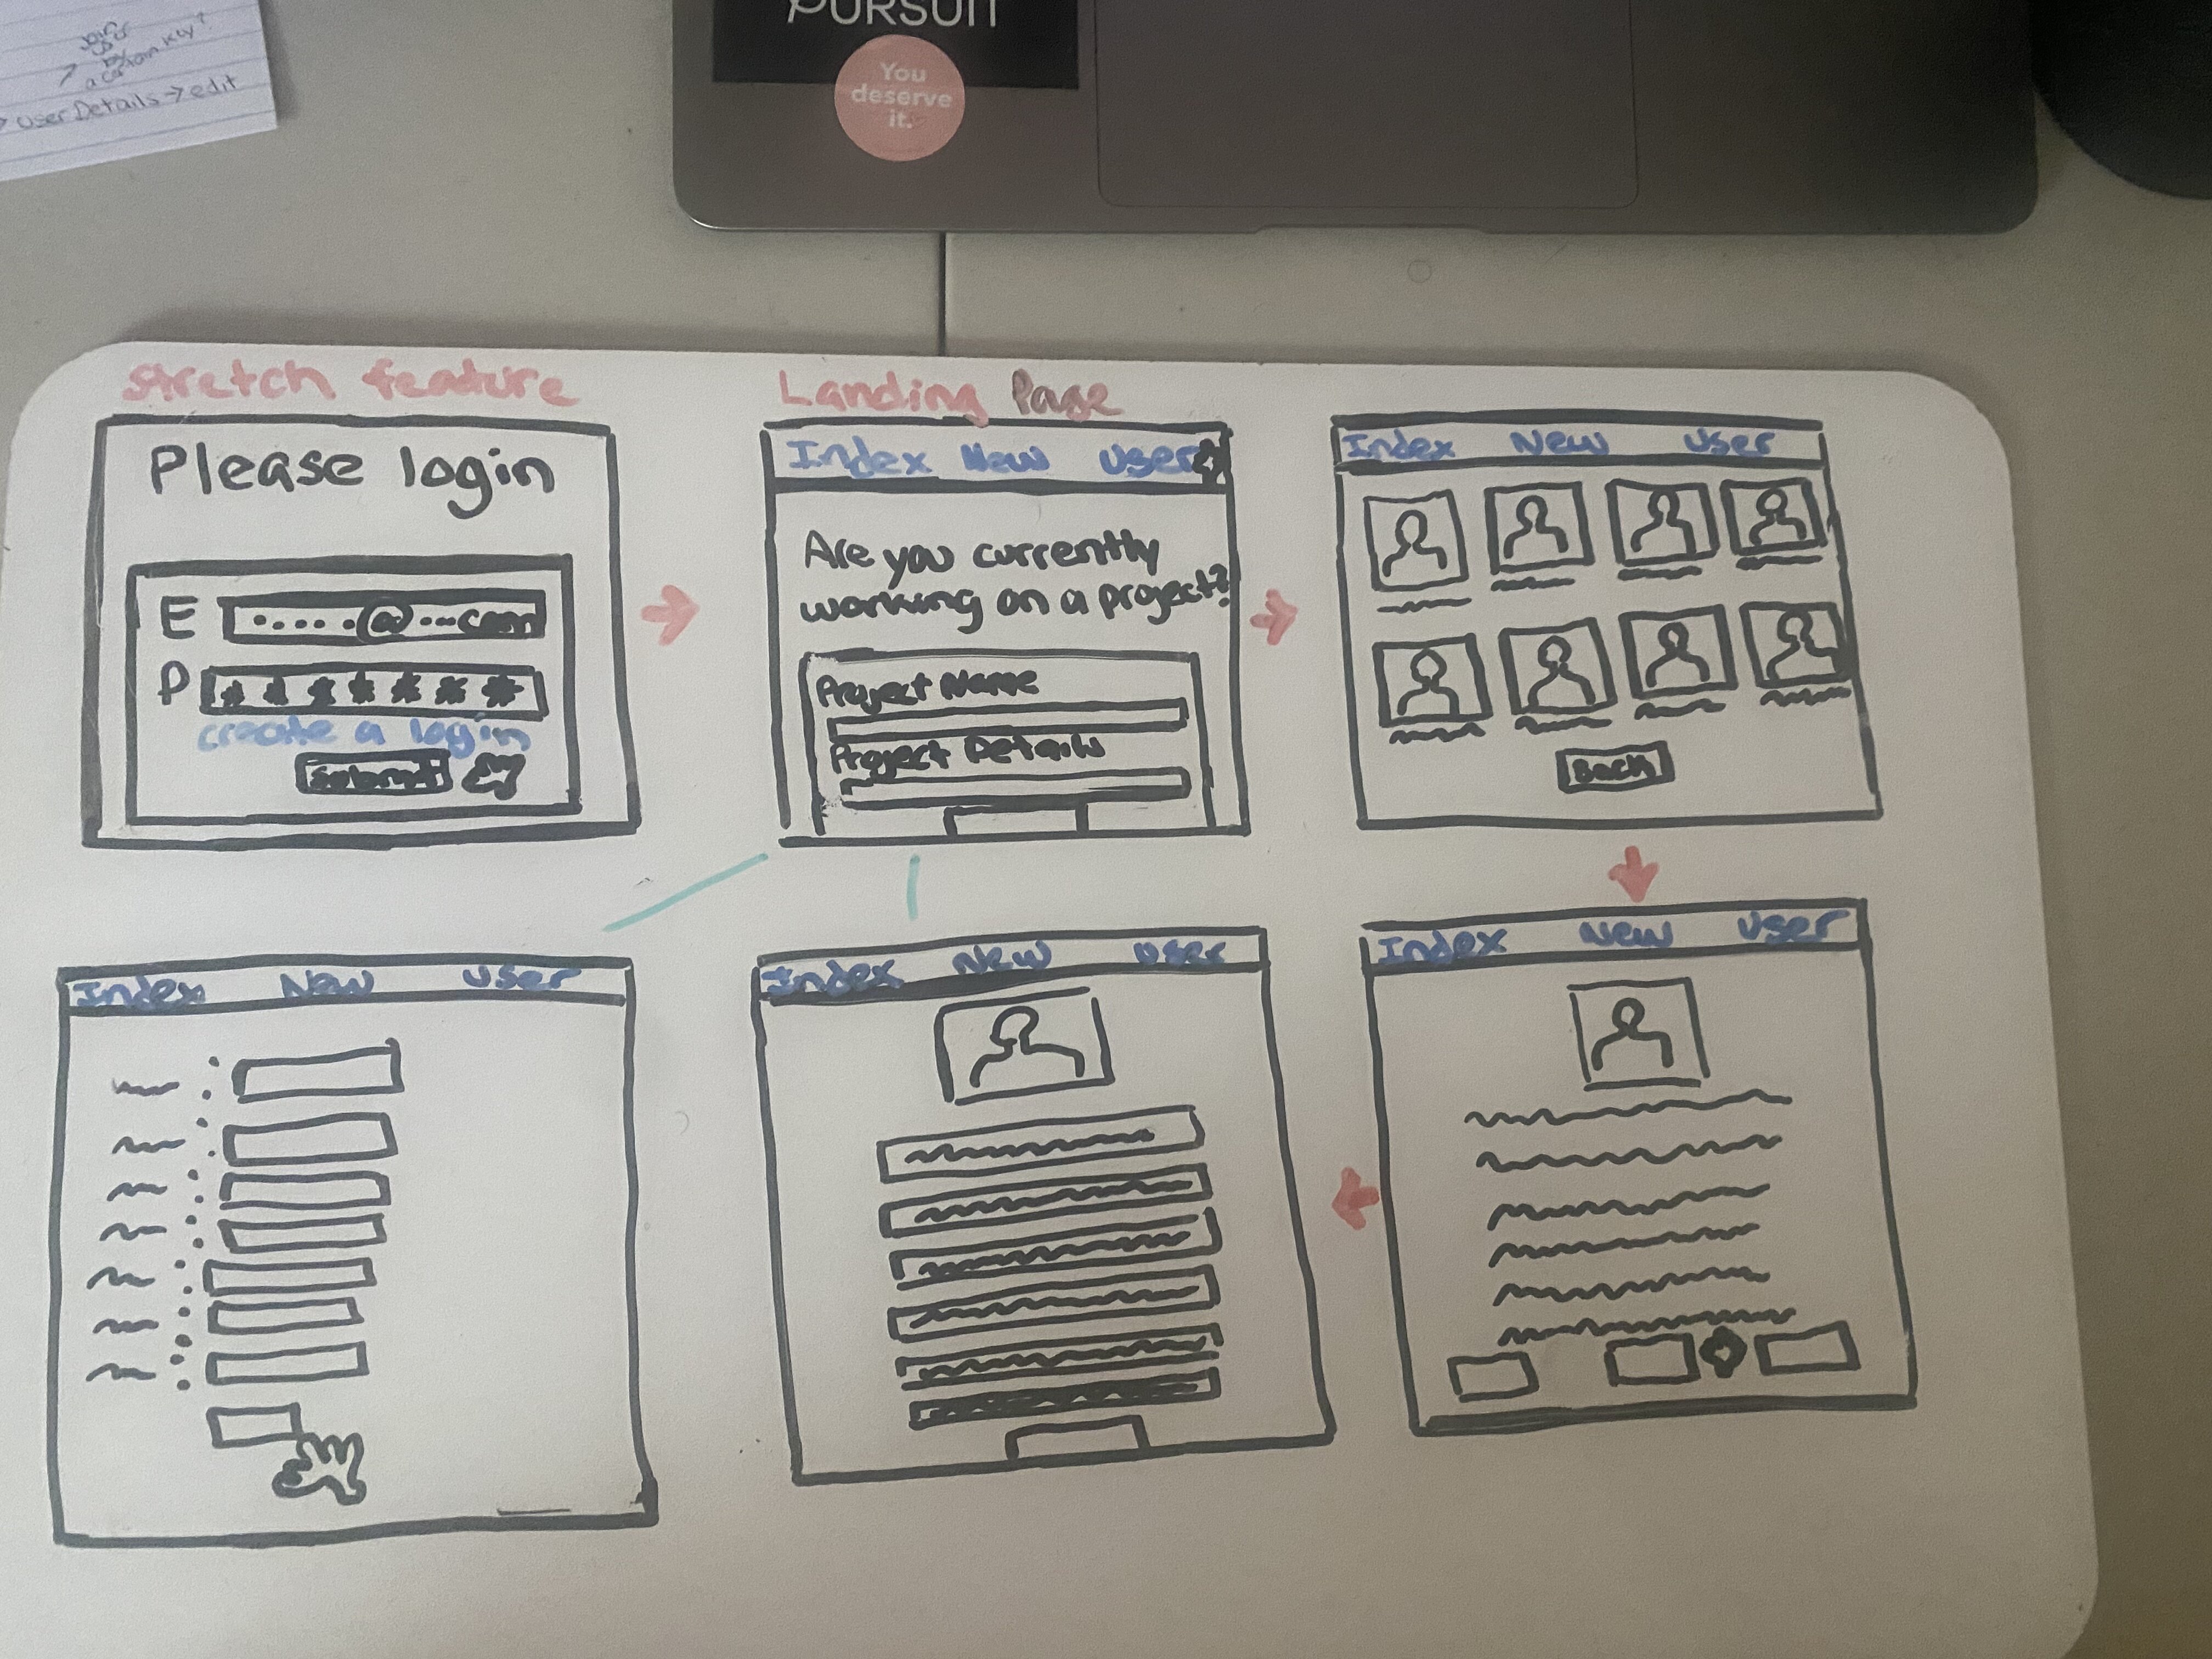 PURSUIT
You
deserve
it.
User Details → edit
Stretch feature
Please login
E .....@...com
P *******
create a login
Submit
Landing Page
Index New User
Are you currently
working on a project?
Project Name
Project Details
Index New User
Back
Index New User
Index New User
Index New User